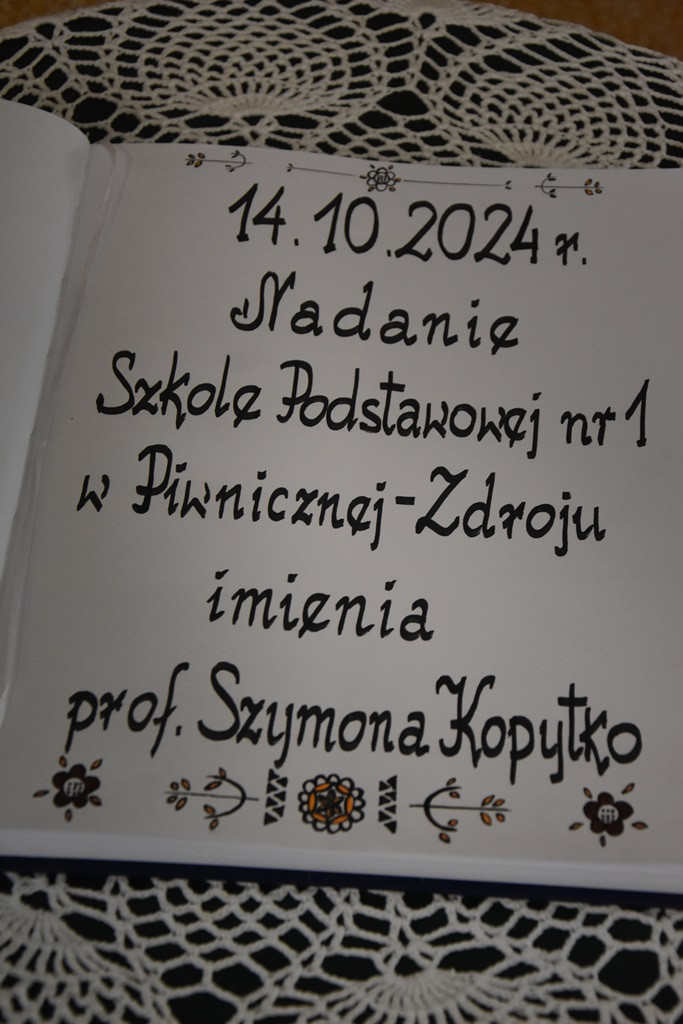 14.10.2024 r.
Nadanie
Szkole Podstawowej nr 1
w Piwnicznej-Zdroju
imienia
prof. Szymona Kopytko